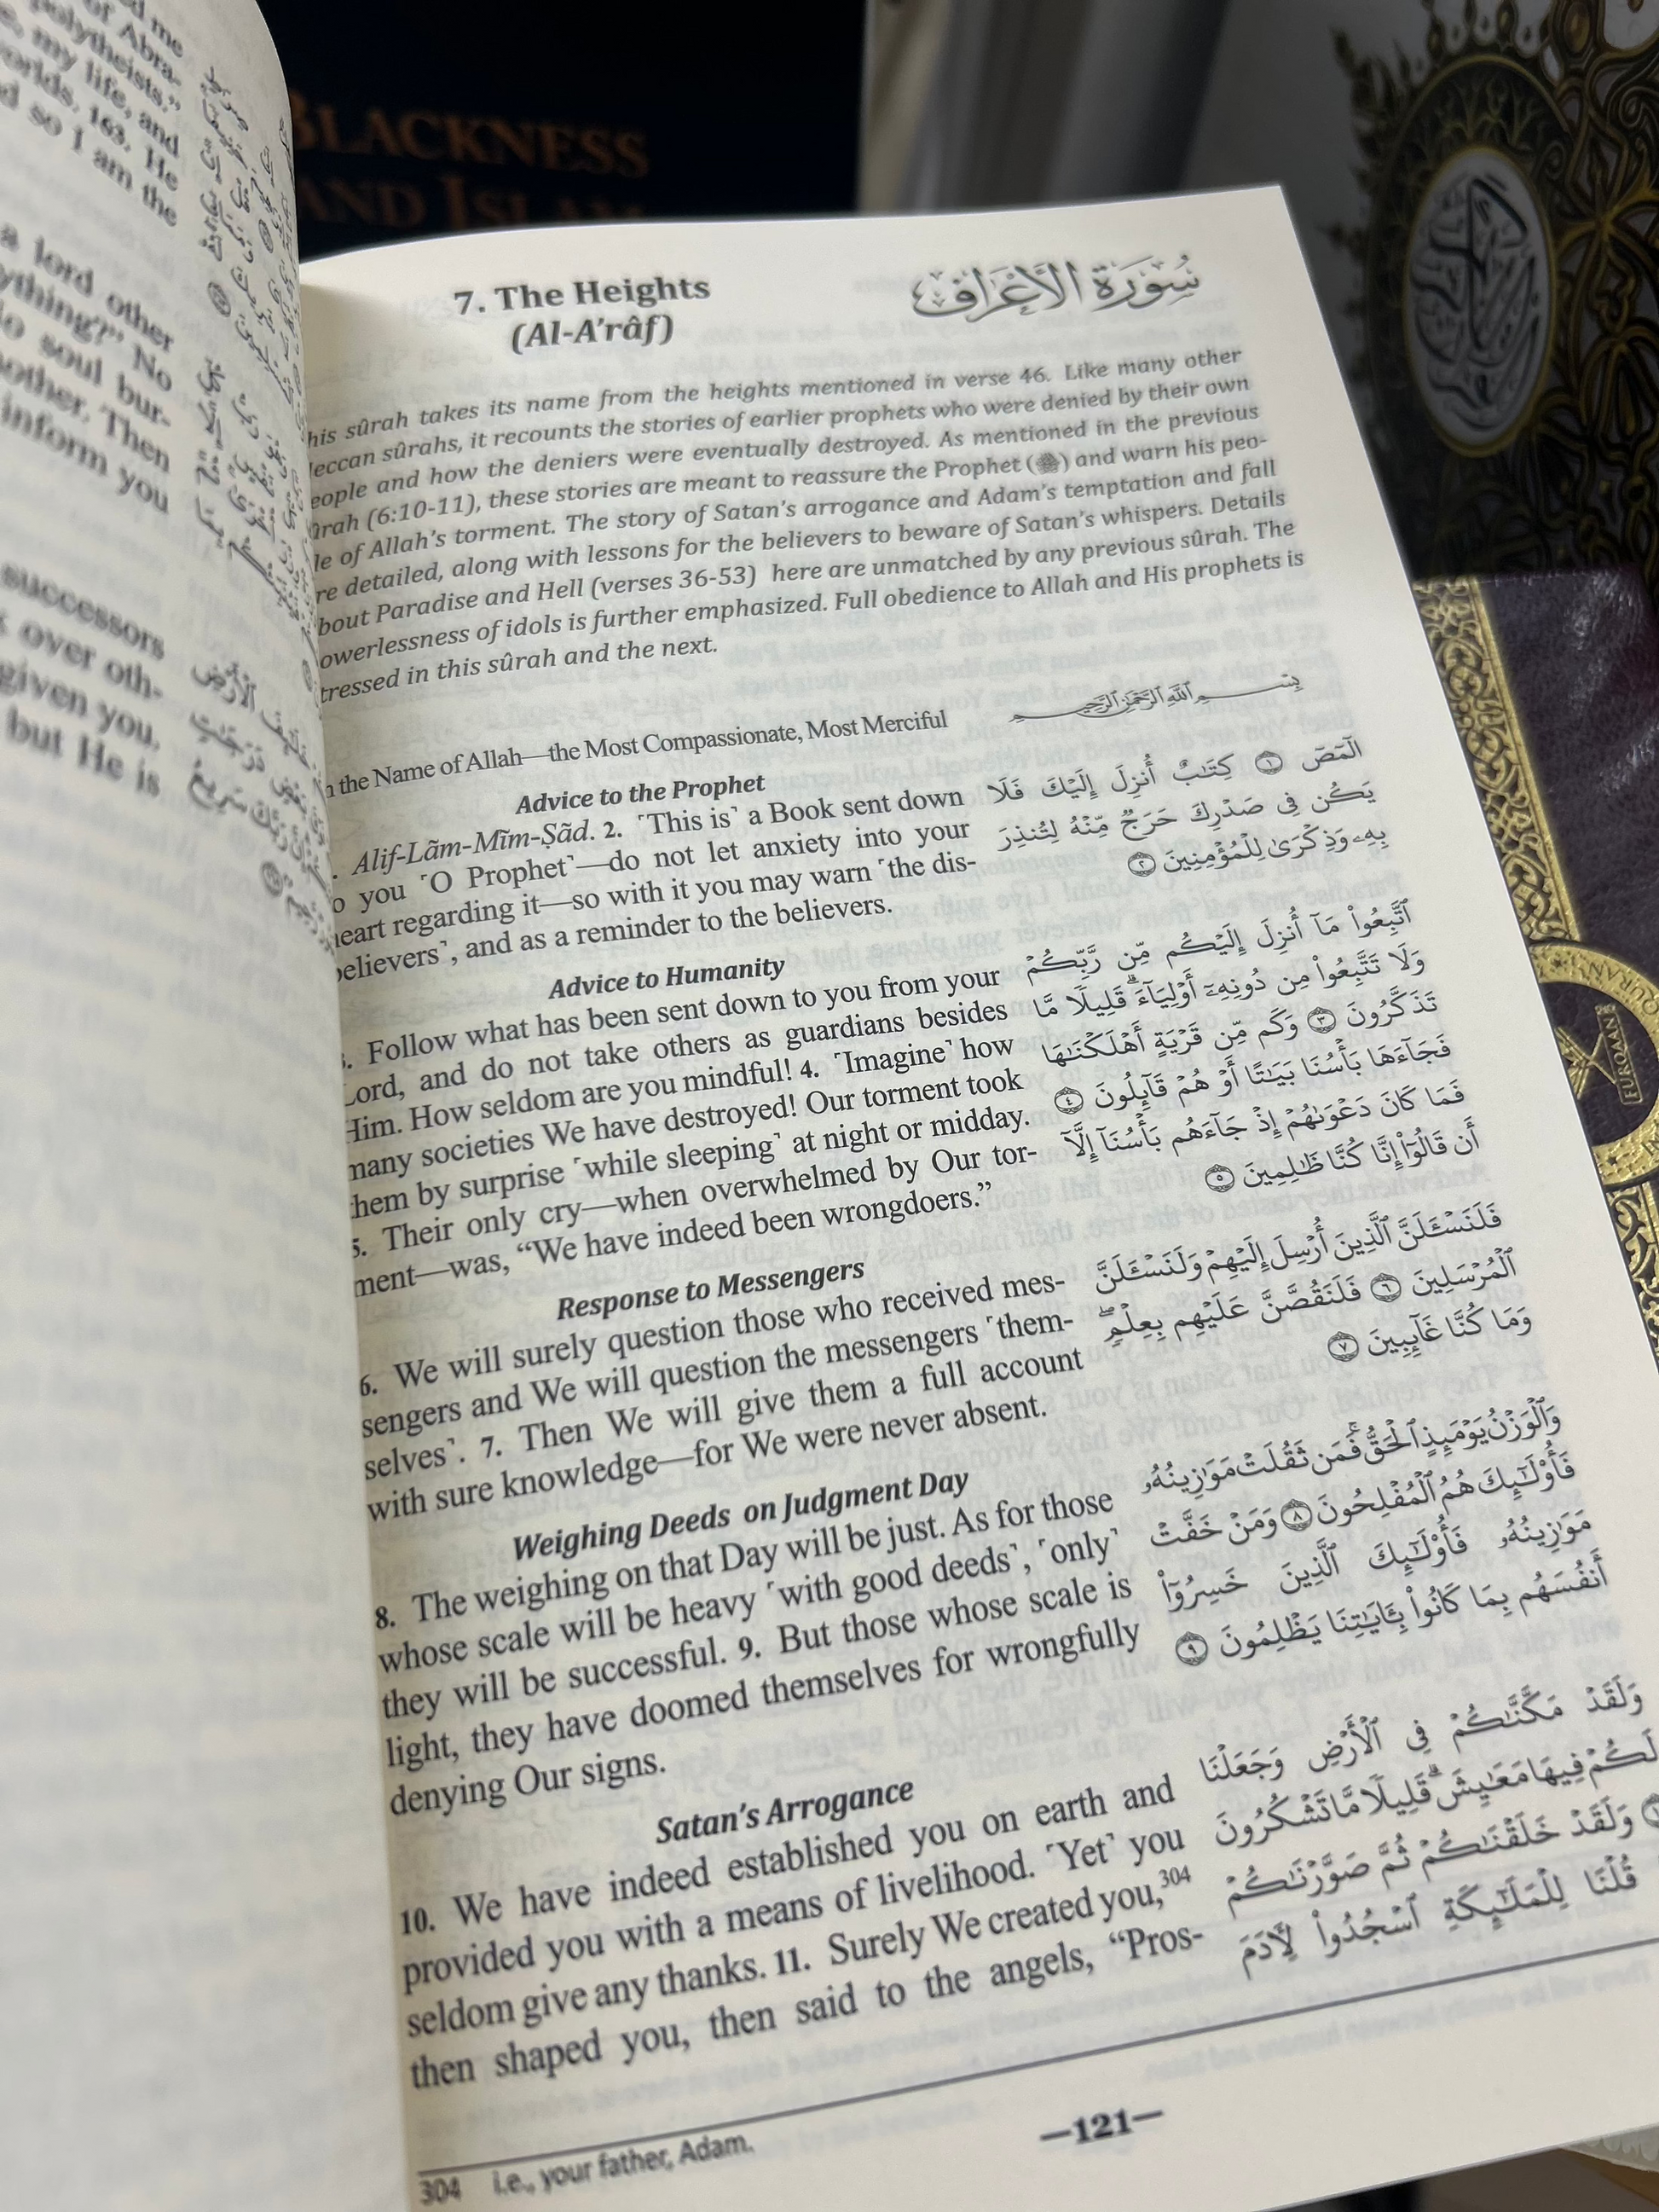 BLACKNESS
AND ISLAM
me
of Abra-
polytheists."
my life, and
worlds. 163. He
so I am the
a lord other
No
soul bur-
another. Then
inform you
successors
over oth-
given you.
but He is
7. The Heights
(Al-A'râf)
سُورَةُ الأَعْرَاف
his sûrah takes its name from the heights mentioned in verse 46. Like many other
eccan sûrahs, it recounts the stories of earlier prophets who were denied by their own
eople and how the deniers were eventually destroyed. As mentioned in the previous
ûrah (6:10-11), these stories are meant to reassure the Prophet (ﷺ) and warn his peo-
le of Allah's torment. The story of Satan's arrogance and Adam's temptation and fall
re detailed, along with lessons for the believers to beware of Satan's whispers. Details
bout Paradise and Hell (verses 36-53) here are unmatched by any previous sûrah. The
owerlessness of idols is further emphasized. Full obedience to Allah and His prophets is
tressed in this sûrah and the next.
n the Name of Allah—the Most Compassionate, Most Merciful
Advice to the Prophet
. Alif-Lãm-Mĩm-Ṣãd. 2. ˹This is˺ a Book sent down
o you ˹O Prophet˺—do not let anxiety into your
heart regarding it—so with it you may warn ˹the dis-
believers˺, and as a reminder to the believers.
Advice to Humanity
3. Follow what has been sent down to you from your
Lord, and do not take others as guardians besides
Him. How seldom are you mindful! 4. ˹Imagine˺ how
many societies We have destroyed! Our torment took
them by surprise ˹while sleeping˺ at night or midday.
5. Their only cry—when overwhelmed by Our tor-
ment—was, “We have indeed been wrongdoers.”
Response to Messengers
6. We will surely question those who received mes-
sengers and We will question the messengers ˹them-
selves˺. 7. Then We will give them a full account
with sure knowledge—for We were never absent.
Weighing Deeds on Judgment Day
8. The weighing on that Day will be just. As for those
whose scale will be heavy ˹with good deeds˺, ˹only˺
they will be successful. 9. But those whose scale is
light, they have doomed themselves for wrongfully
denying Our signs.
Satan's Arrogance
10. We have indeed established you on earth and
provided you with a means of livelihood. ˹Yet˺ you
seldom give any thanks. 11. Surely We created you,304
then shaped you, then said to the angels, “Pros-
بِسْمِ ٱللَّهِ ٱلرَّحْمَٰنِ ٱلرَّحِيمِ
الٓمٓصٓ ١ كِتَٰبٌ أُنزِلَ إِلَيْكَ فَلَا
يَكُن فِى صَدْرِكَ حَرَجٌ مِّنْهُ لِتُنذِرَ
بِهِۦ وَذِكْرَىٰ لِلْمُؤْمِنِينَ ٢
ٱتَّبِعُوا۟ مَآ أُنزِلَ إِلَيْكُم مِّن رَّبِّكُمْ
وَلَا تَتَّبِعُوا۟ مِن دُونِهِۦٓ أَوْلِيَآءَ ۗ قَلِيلًا مَّا
تَذَكَّرُونَ ٣ وَكَم مِّن قَرْيَةٍ أَهْلَكْنَٰهَا
فَجَآءَهَا بَأْسُنَا بَيَٰتًا أَوْ هُمْ قَآئِلُونَ ٤
فَمَا كَانَ دَعْوَىٰهُمْ إِذْ جَآءَهُم بَأْسُنَآ إِلَّآ
أَن قَالُوٓا۟ إِنَّا كُنَّا ظَٰلِمِينَ ٥
فَلَنَسْـَٔلَنَّ ٱلَّذِينَ أُرْسِلَ إِلَيْهِمْ وَلَنَسْـَٔلَنَّ
ٱلْمُرْسَلِينَ ٦ فَلَنَقُصَّنَّ عَلَيْهِم بِعِلْمٍ ۖ
وَمَا كُنَّا غَآئِبِينَ ٧
وَٱلْوَزْنُ يَوْمَئِذٍ ٱلْحَقُّ ۚ فَمَن ثَقُلَتْ مَوَٰزِينُهُۥ
فَأُو۟لَٰٓئِكَ هُمُ ٱلْمُفْلِحُونَ ٨ وَمَنْ خَفَّتْ
مَوَٰزِينُهُۥ فَأُو۟لَٰٓئِكَ ٱلَّذِينَ خَسِرُوٓا۟
أَنفُسَهُم بِمَا كَانُوا۟ بِـَٔايَٰتِنَا يَظْلِمُونَ ٩
وَلَقَدْ مَكَّنَّٰكُمْ فِى ٱلْأَرْضِ وَجَعَلْنَا
لَكُمْ فِيهَا مَعَٰيِشَ ۗ قَلِيلًا مَّا تَشْكُرُونَ
١٠ وَلَقَدْ خَلَقْنَٰكُمْ ثُمَّ صَوَّرْنَٰكُمْ
قُلْنَا لِلْمَلَٰٓئِكَةِ ٱسْجُدُوا۟ لِـَٔادَمَ
304 i.e., your father, Adam.
—121—
FURQAAN